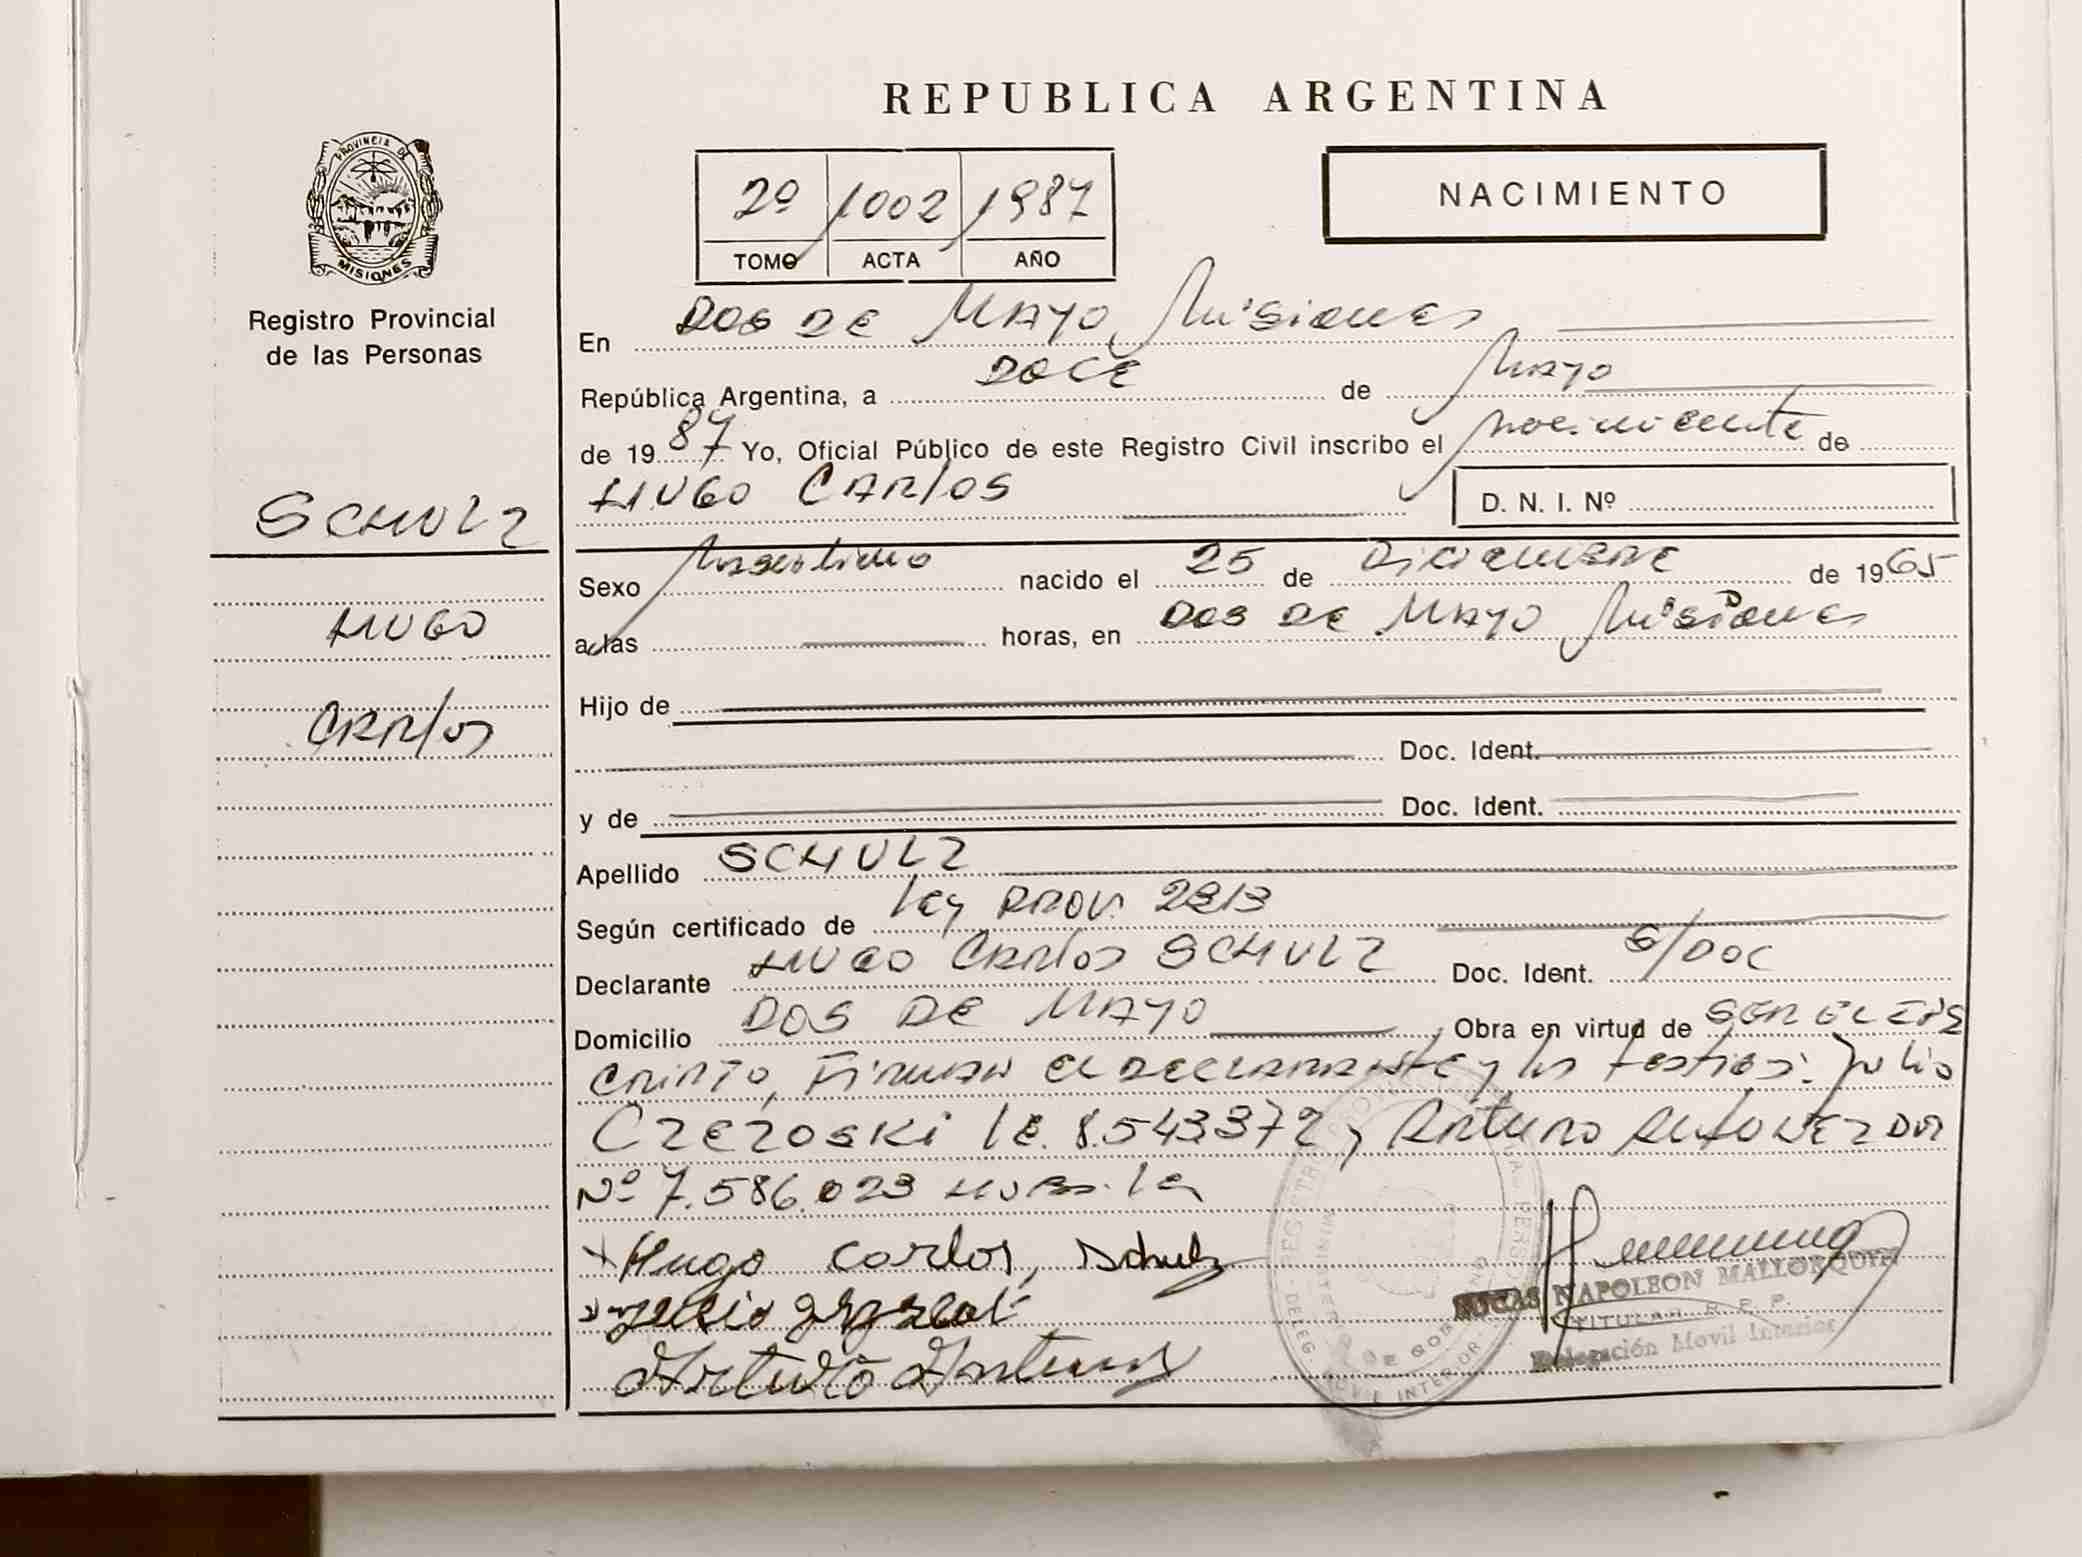 REPUBLICA ARGENTINA
PROVINCIA DE
MISIONES
Registro Provincial
de las Personas
2º 1002 1987
TOMO ACTA AÑO
NACIMIENTO
En DOS DE MAYO, Misiones
República Argentina, a DOCE de Mayo
de 1987 Yo, Oficial Público de este Registro Civil inscribo el nacimiento de
HUGO CARlos
D. N. I. Nº
SCHULZ
HUGO
CARlos
Sexo Masculino nacido el 25 de Diciembre de 1965
a las horas, en DOS DE MAYO Misiones
Hijo de
Doc. Ident.
y de Doc. Ident.
Apellido SCHULZ
Según certificado de ley PROV. 2313
Declarante HUGO CARlos SCHULZ Doc. Ident. S/DOC
Domicilio DOS DE MAYO Obra en virtud de
Firman el declarante y los testigos: Julio
CZEZOSKI l.E. 8.543.372 y Arturo
Nº 7.586.023
Hugo carlos, schulz
Arturo
NAPOLEON MALLORQUIN
TITULAR R. P. P.
Delegación Movil Interior